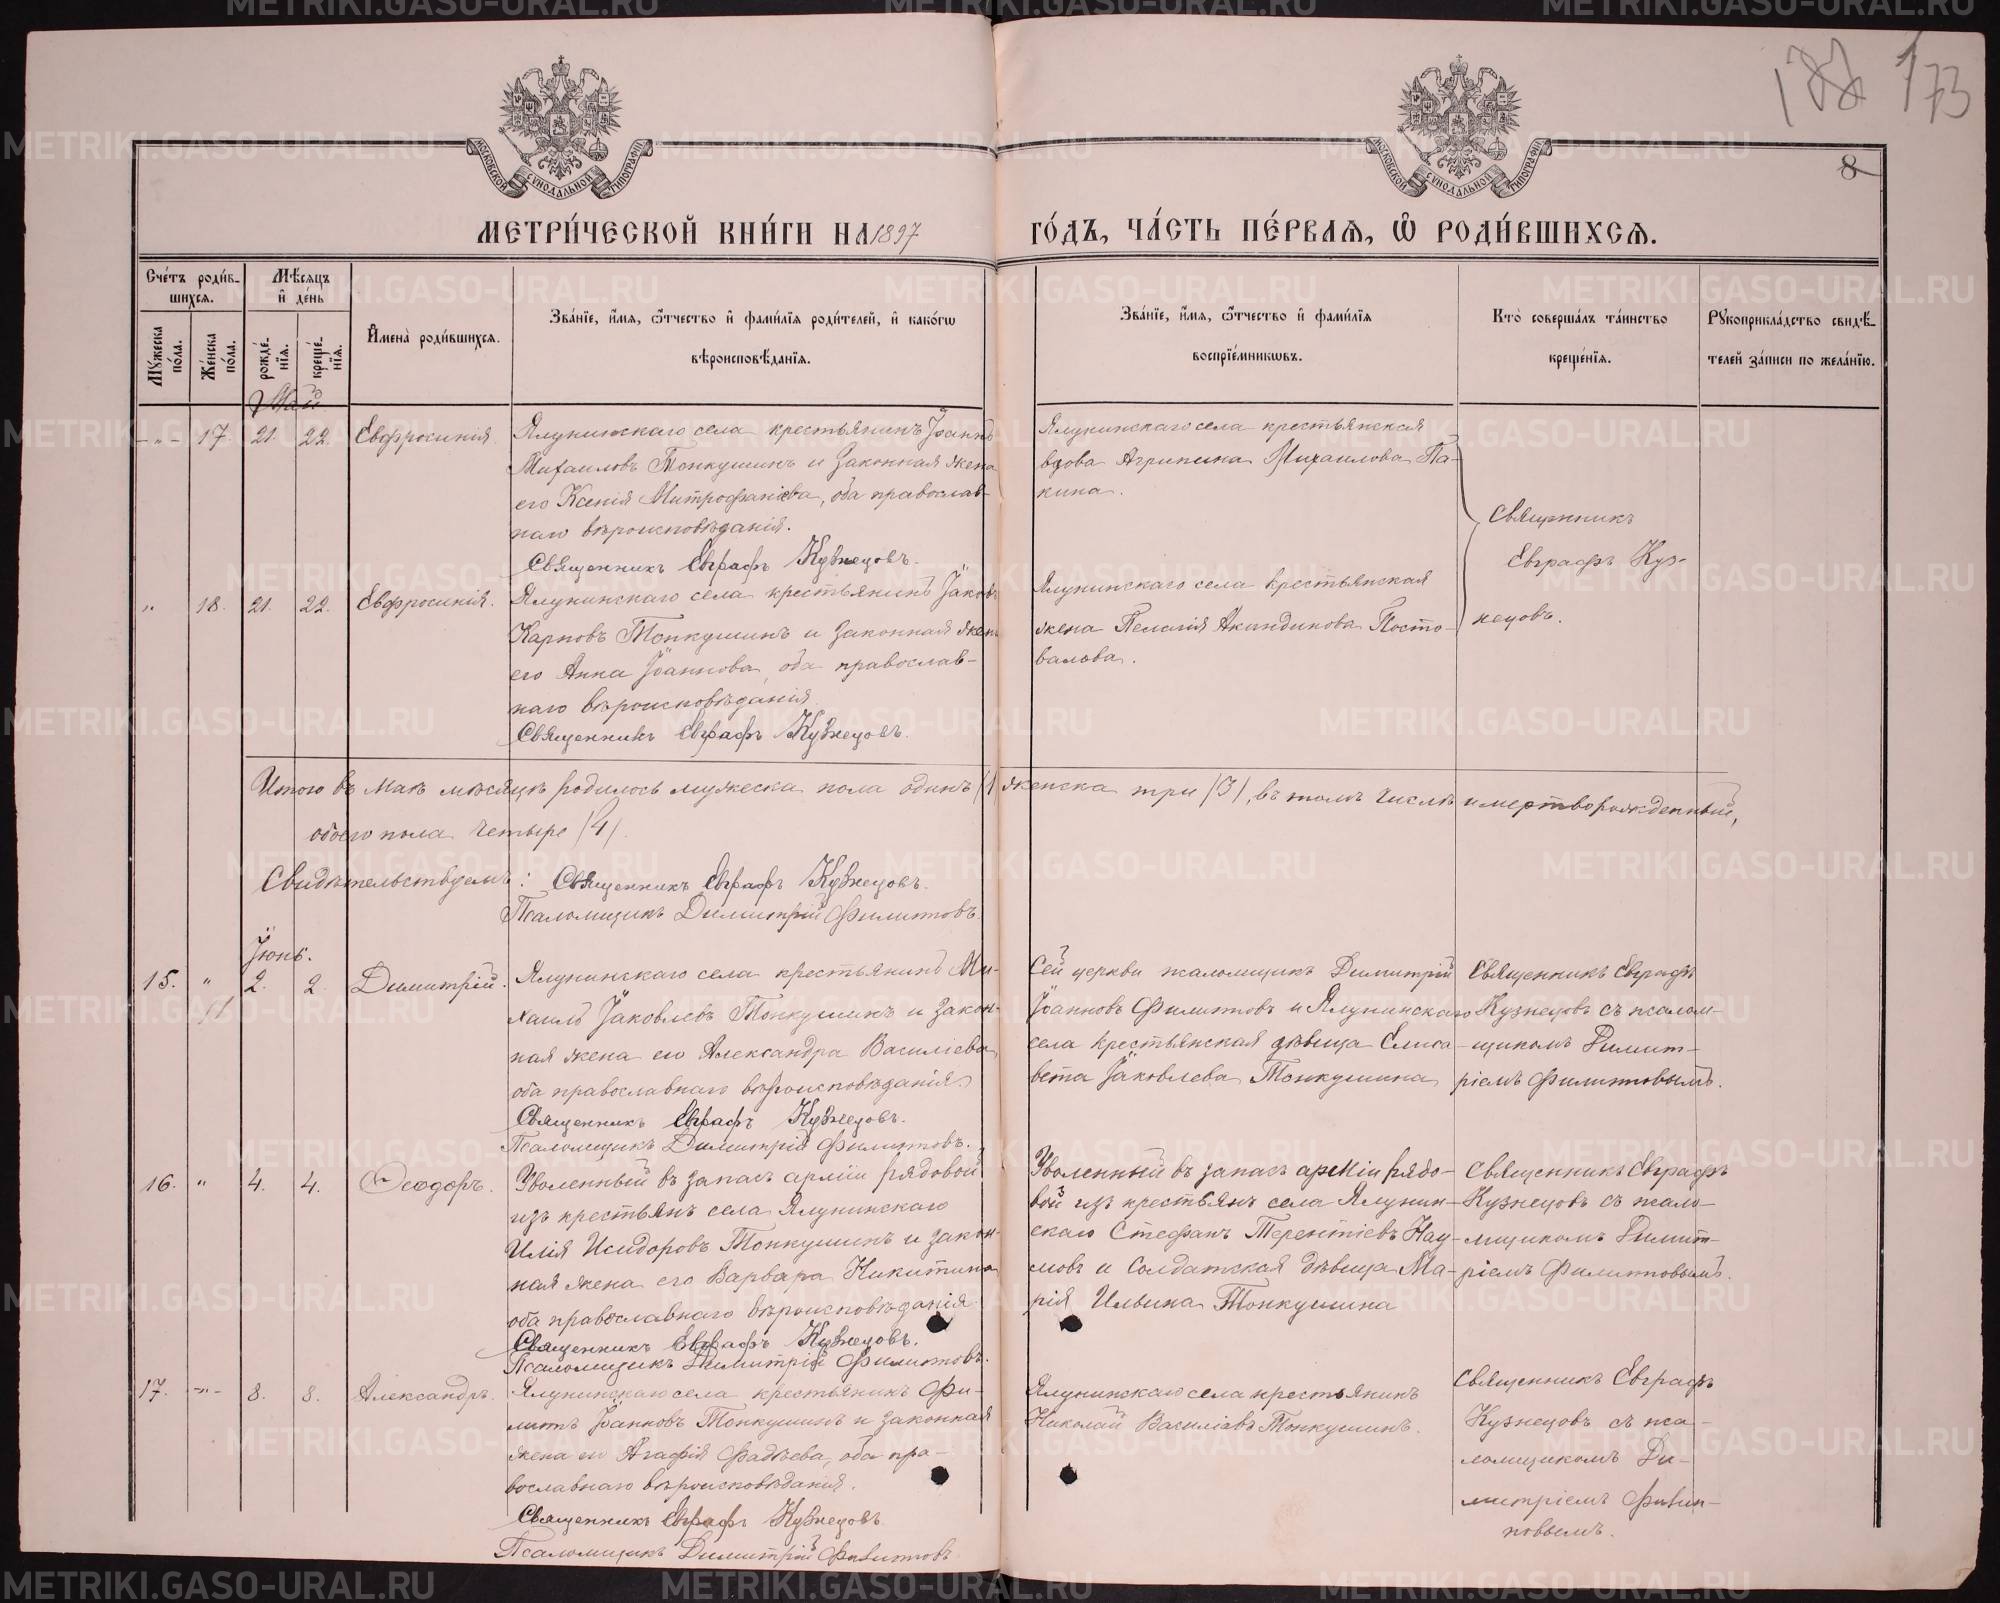 188 173
8
МОСКОВСКОЙ СУНОДАЛЬНОЙ ТИПОГРАФІИ
МОСКОВСКОЙ СУНОДАЛЬНОЙ ТИПОГРАФІИ
МЕТРИ́ЧЕСКОЙ КНИ́ГИ НА 1897 ГО́ДЪ, ЧА́СТЬ ПЕ́РВАЯ, Ѡ҆ РОДИ́ВШИХСЯ.
Сче́тъ роди́в-
шихся.
Мѣ́сяцъ
и҆ де́нь
И҆мена̀ роди́вшихся.
Зва́нїе, и҆́мя, ѻ҆́тчество и҆ фами́лїя роди́телей, и҆ како́гѡ
вѣроисповѣ́данїя.
Зва́нїе, и҆́мя, ѻ҆́тчество и҆ фами́лїя
воспрїе́мниковъ.
Кто̀ соверша́лъ та́инство
креще́нїя.
Рꙋкоприкла́дство свидѣ́-
телей за́писи по жела́нїю.
Мꙋ́жеска по́ла.
Же́нска по́ла.
рожде́-нїя.
креще́-нїя.
Май
-"- 17. 21. 22. Евфросинія.
Ялунинскаго села крестьянинъ Іоаннъ
Михаиловъ Топкушинъ и законная жена
его Ксенія Митрофаніева, оба православ-
наго вѣроисповѣданія.
Священникъ Евграфъ Кузнецовъ.
Ялунинскаго села крестьянская
вдова Агрипина Михаилова Па-
кина.
Священникъ
Евграфъ Куз-
нецовъ.
" 18. 21. 22. Евфросинія.
Ялунинскаго села крестьянинъ Іаковъ
Карповъ Топкушинъ и законная жена
его Анна Іоаннова, оба православ-
наго вѣроисповѣданія.
Священникъ Евграфъ Кузнецовъ.
Ялунинскаго села крестьянская
жена Пелагія Акиндинова Посто-
валова.
Итого въ маѣ мѣсяцѣ родилось мужеска пола одинъ /1/ женска три /3/, въ томъ числѣ и мертворожденный,
обоего пола четыре /4/.
Свидѣтельствуемъ: Священникъ Евграфъ Кузнецовъ.
Псаломщикъ Димитрій Филипповъ.
Іюнь.
15. " 2. 2. Димитрій.
11
Ялунинскаго села крестьянинъ Ми-
хаилъ Іаковлевъ Топкушинъ и закон-
ная жена его Александра Василіева
оба православнаго вѣроисповѣданія
Священникъ Евграфъ Кузнецовъ.
Псаломщикъ Димитрій Филипповъ.
Сей церкви псаломщикъ Димитрій
Іоанновъ Филипповъ и Ялунинскаго
села крестьянская дѣвица Елиса-
вета Іаковлева Топкушина
Священникъ Евграфъ
Кузнецовъ съ псалом-
щикомъ Димит-
ріемъ Филипповымъ.
16. " 4. 4. Ѳеодоръ.
Уволенный въ запасъ арміи рядовой
изъ крестьянъ села Ялунинскаго
Илія Исидоровъ Топкушинъ и закон-
ная жена его Варвара Никитина
оба православнаго вѣроисповѣданія
Священникъ Евграфъ Кузнецовъ.
Псаломщикъ Димитрій Филипповъ.
Уволенный въ запасъ арміи рядо-
вой изъ крестьянъ села Ялунин-
скаго Стефанъ Терентіевъ Нау-
мовъ и Солдатская дѣвица Ма-
рія Ильина Топкушина
Священникъ Евграфъ
Кузнецовъ съ псало-
мщикомъ Димит-
ріемъ Филипповымъ.
17. -"- 8. 8. Александръ.
Ялунинскаго села крестьянинъ Фи-
липпъ Іоанновъ Топкушинъ и законная
жена его Агафія Фадѣева, оба пра-
вославнаго вѣроисповѣданія.
Священникъ Евграфъ Кузнецовъ
Псаломщикъ Димитрій Филипповъ
Ялунинскаго села крестьянинъ
Николай Василіевъ Топкушинъ.
Священникъ Евграфъ
Кузнецовъ съ пса-
ломщикомъ Ди-
митріемъ Филип-
повымъ.
METRIKI.GASO-URAL.RU